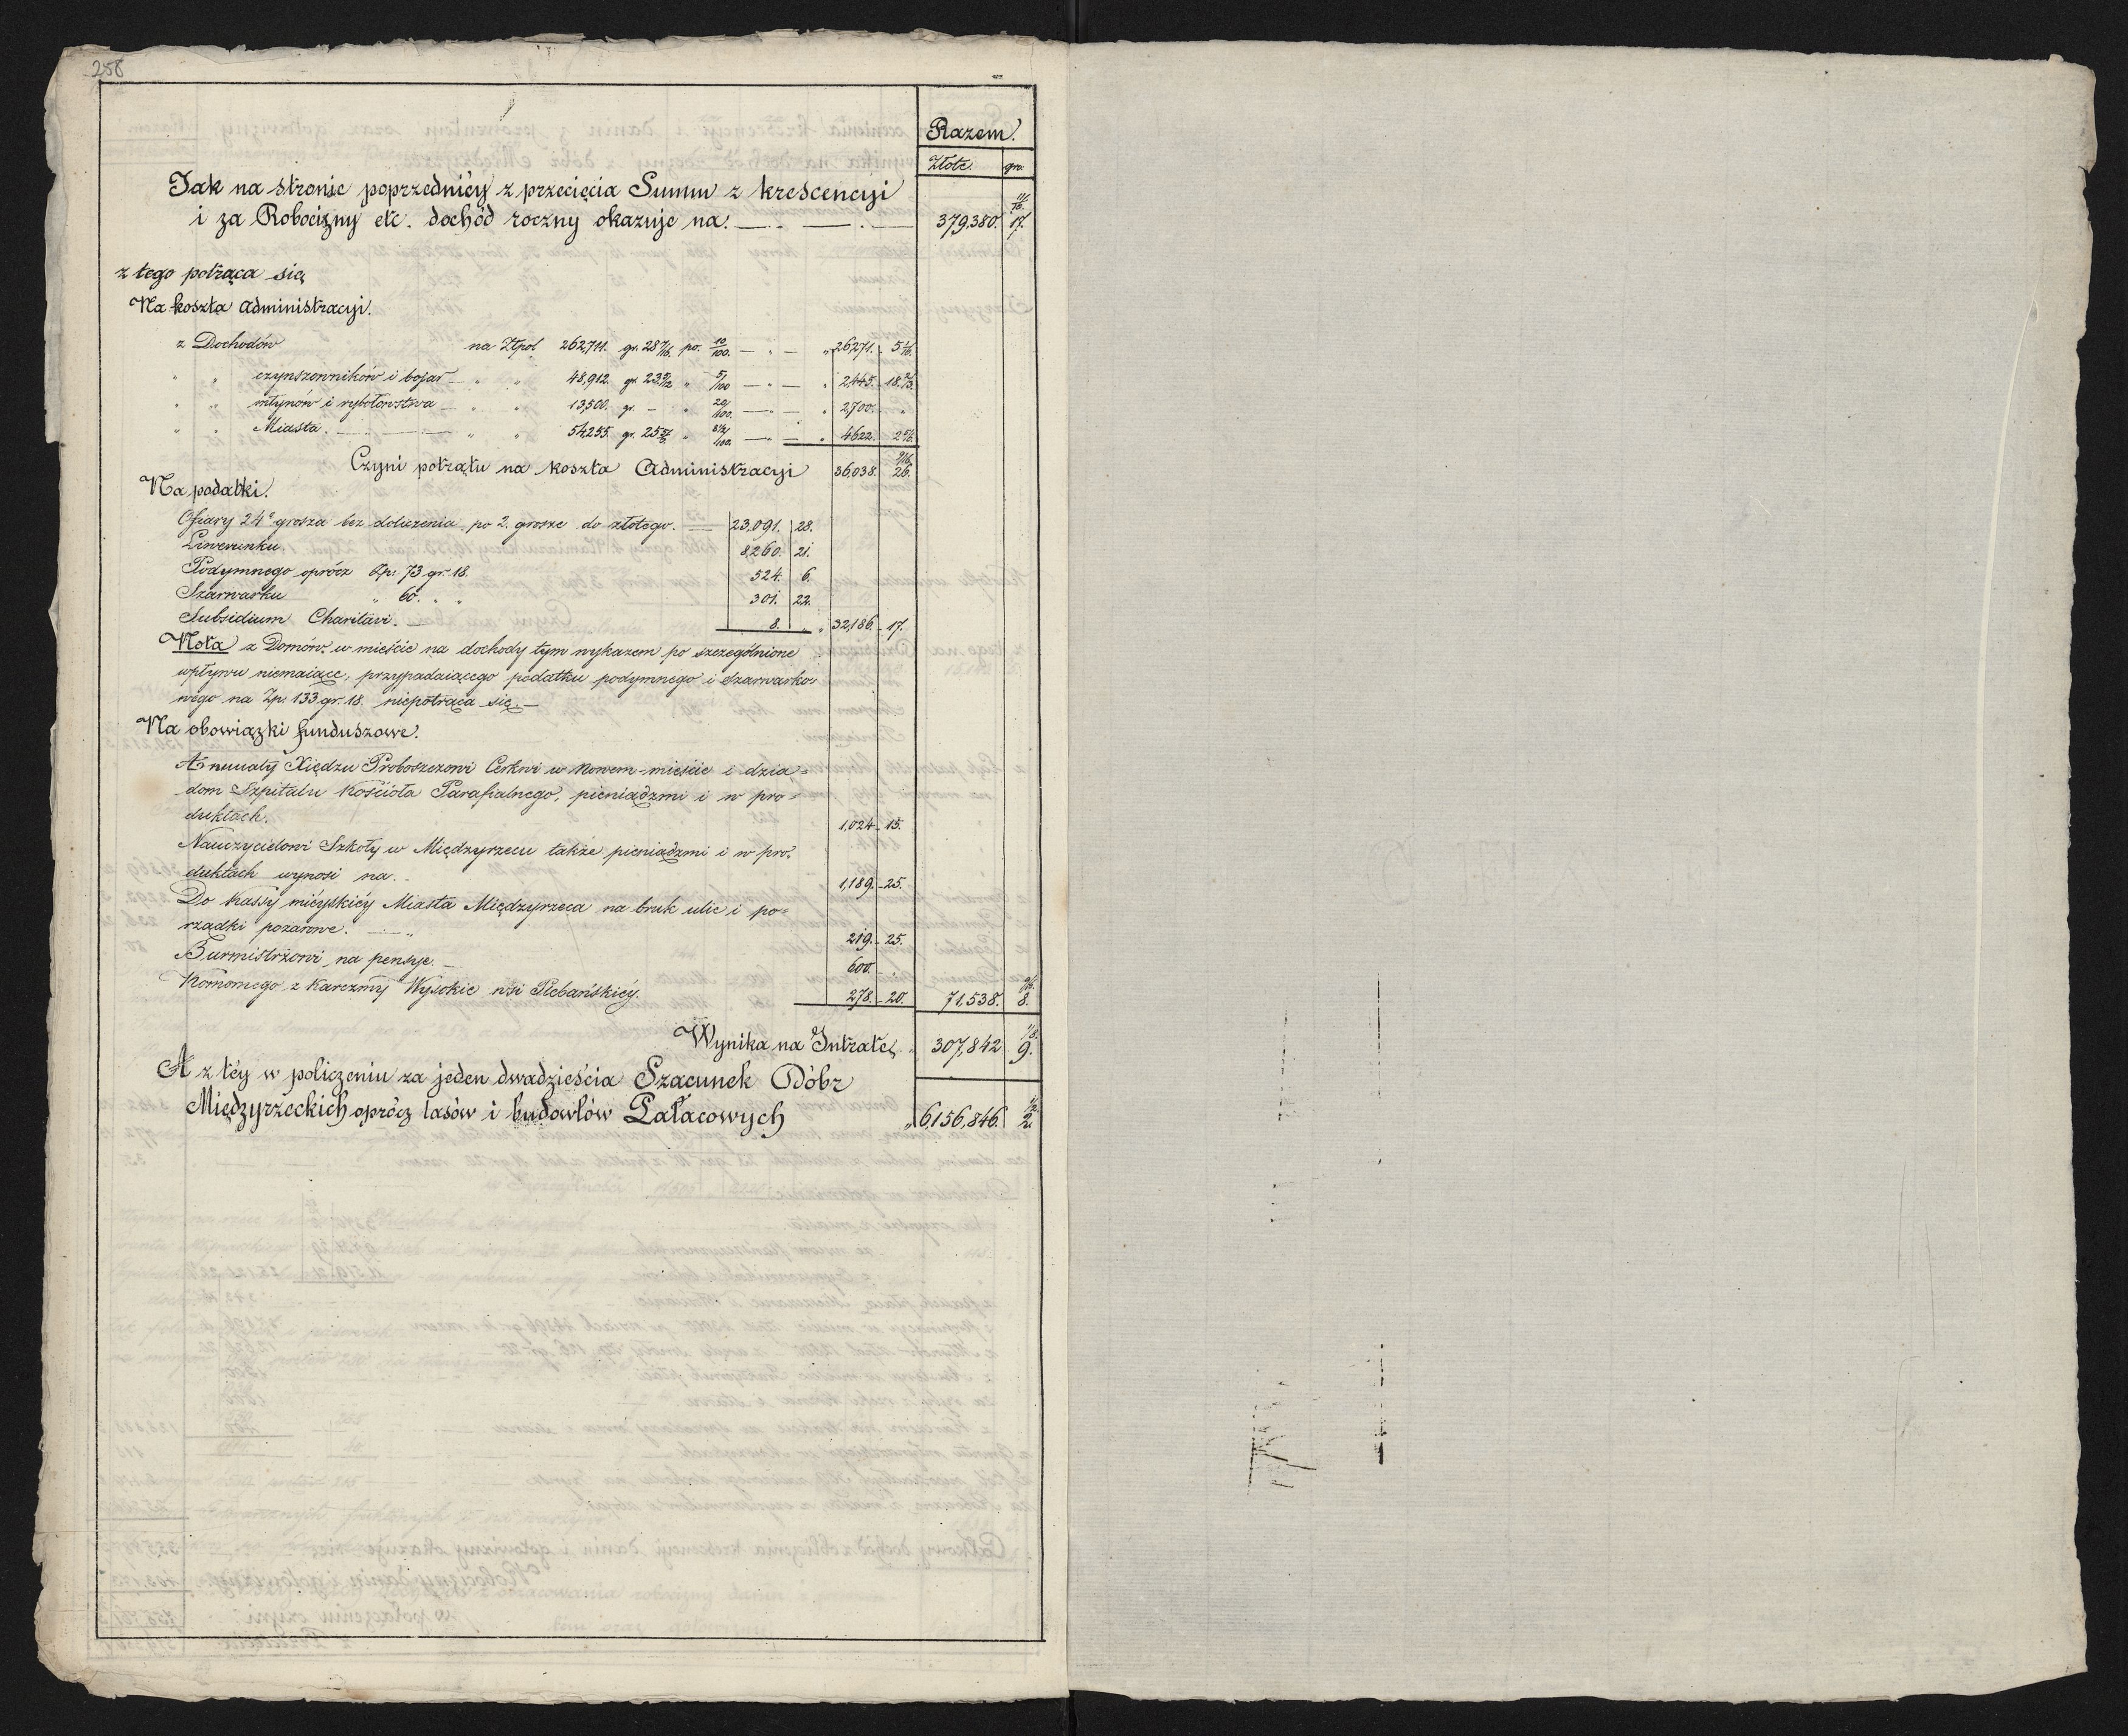 258
Razem.
Złote. gro.
Jak na stronie poprzedniéy z przecięcia Summ z krescencyi
i za Robocizny etc. dochód roczny okazuje na. 379,380. 17. 11/16.
z tego potrąca się
Na koszta administracyi.
z Dochodów na Złpol 262,711. gr. 28 7/16. po. 10/100. — " — " 26,271. 5 1/16.
" " czynszowników i bojar — " " 48,912. gr. 23 5/12 " 5/100 — " — " 2,445. 18. 2/3.
" " młynów i rybołówstwa — " " 13,500. gr. — " 20/100. — " — " 2,700. "
" " Miasta. — " " 54,255. gr. 25 " — " — " 4622. 2
Czyni potrątu na koszta Administracyi 36,038. 26. 9/16.
Na podatki.
Ofiary 24º grosza bez doliczenia po 2. grosze do złotego. — 23,091. 28.
Liwerunku. 8,260. 21.
Podymnego oprócz Zp: 73 gr. 18. 524. 6.
Szarwarku " 60. " " 301. 22.
Subsidium Charitavi. — 8. " " 32,186. 17.
Nota z Domów w mieście na dochody tym wykazem po szczególnione
wpływu niemaiące, przypadaiącego podatku podymnego i szarwarko-
wego na Zp. 133 gr. 18. niepotrąca się. —
Na obowiązki funduszowe.
Annuaty Xiędzu Proboszczowi Cerkwi w Nowem-mieście i dzia=
dom Szpitalu Kościoła Parafialnego, pieniądzmi i w pro=
duktach. 1,024 - 15.
Nauczycielowi Szkoły w Międzyrzecu także pieniądzmi i w pro=
duktach wynosi na. 1,189. - 25.
Do Kassy miéyskiéy Miasta Międzyrzeca na bruk ulic i po=
rządki pożarowe. — " 219. - 25.
Burmistrzowi na pensye. — 600. - "
Komornego z Karczmy Wysokie wsi Plebańskiéy. 278. - 20. 71,538. 8.
Wynika na Intratę. " 307,842 9.
A z téy w policzeniu za jeden dwadzieścia Szacunek Dóbr
Międzyrzeckich oprócz lasów i budowłów Pałacowych " 6,156,846. 2.